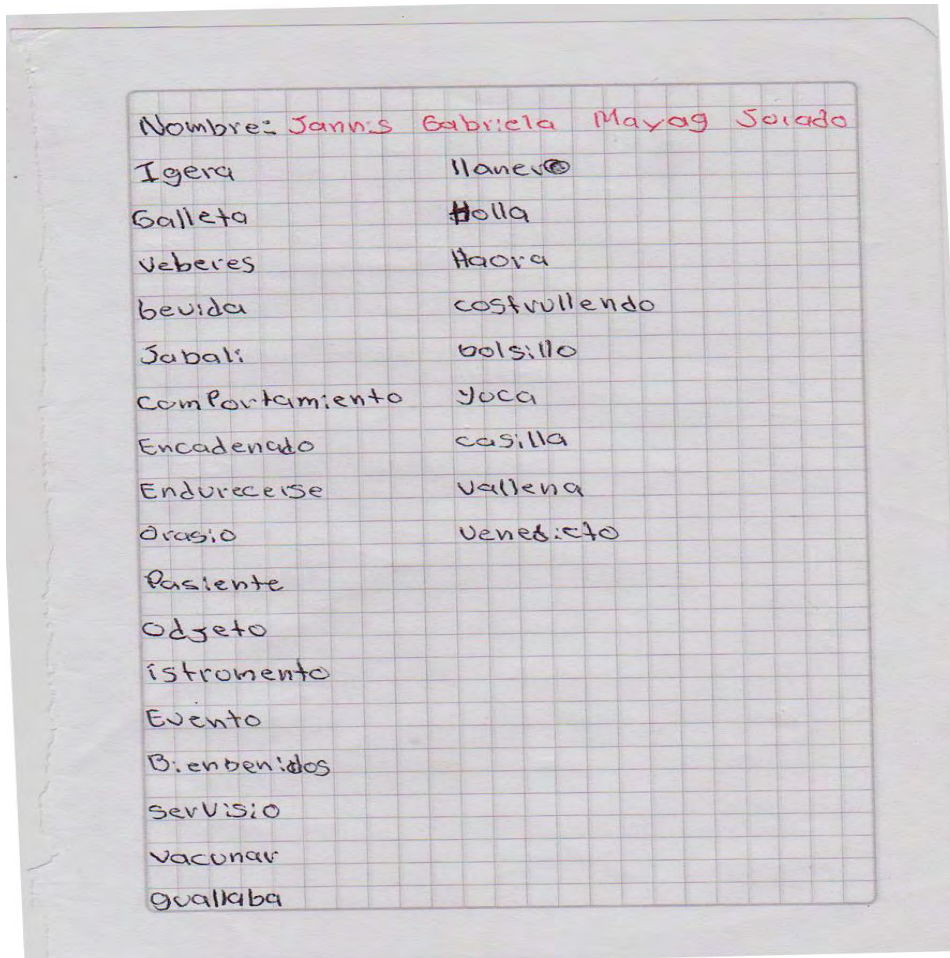 Nombre: Jannis Gabriela Mayag Jojado
Igera
Galleta
veberes
bevida
Jabali
comportamiento
Encadenado
Endurecerse
Orasio
Pasiente
Odjeto
istromento
Evento
Bienbenidos
servisio
vacunar
guallaba
llanero
Holla
Haora
costrullendo
bolsillo
yuca
casilla
vallena
venedicto